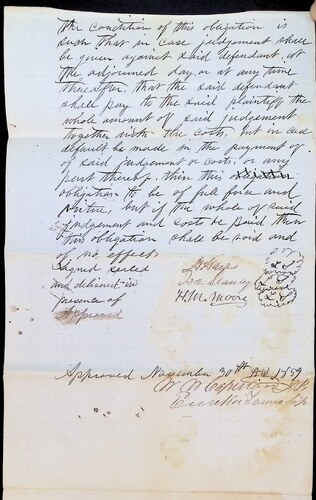 The condition of this obligation is
such that in case judgement shall
be given against said defendant, at
the adjourned day, or at any time
thereafter. that the said defendant
shall pay to the said plaintiff the
whole amount of said judgement
together with the costs, but in case
default be made in the payment of
of said judgement or costs, or any
part thereof. then this
obligation to be of full force and
virtue, but if the whole of said
judgement and costs be paid then
this obligation shall be void and
of no effect.
Signed sealed
and delivered in
presence of
Approved
H. M. Moore
Approved November 30th AD 1859
J.P.
Eureka Township